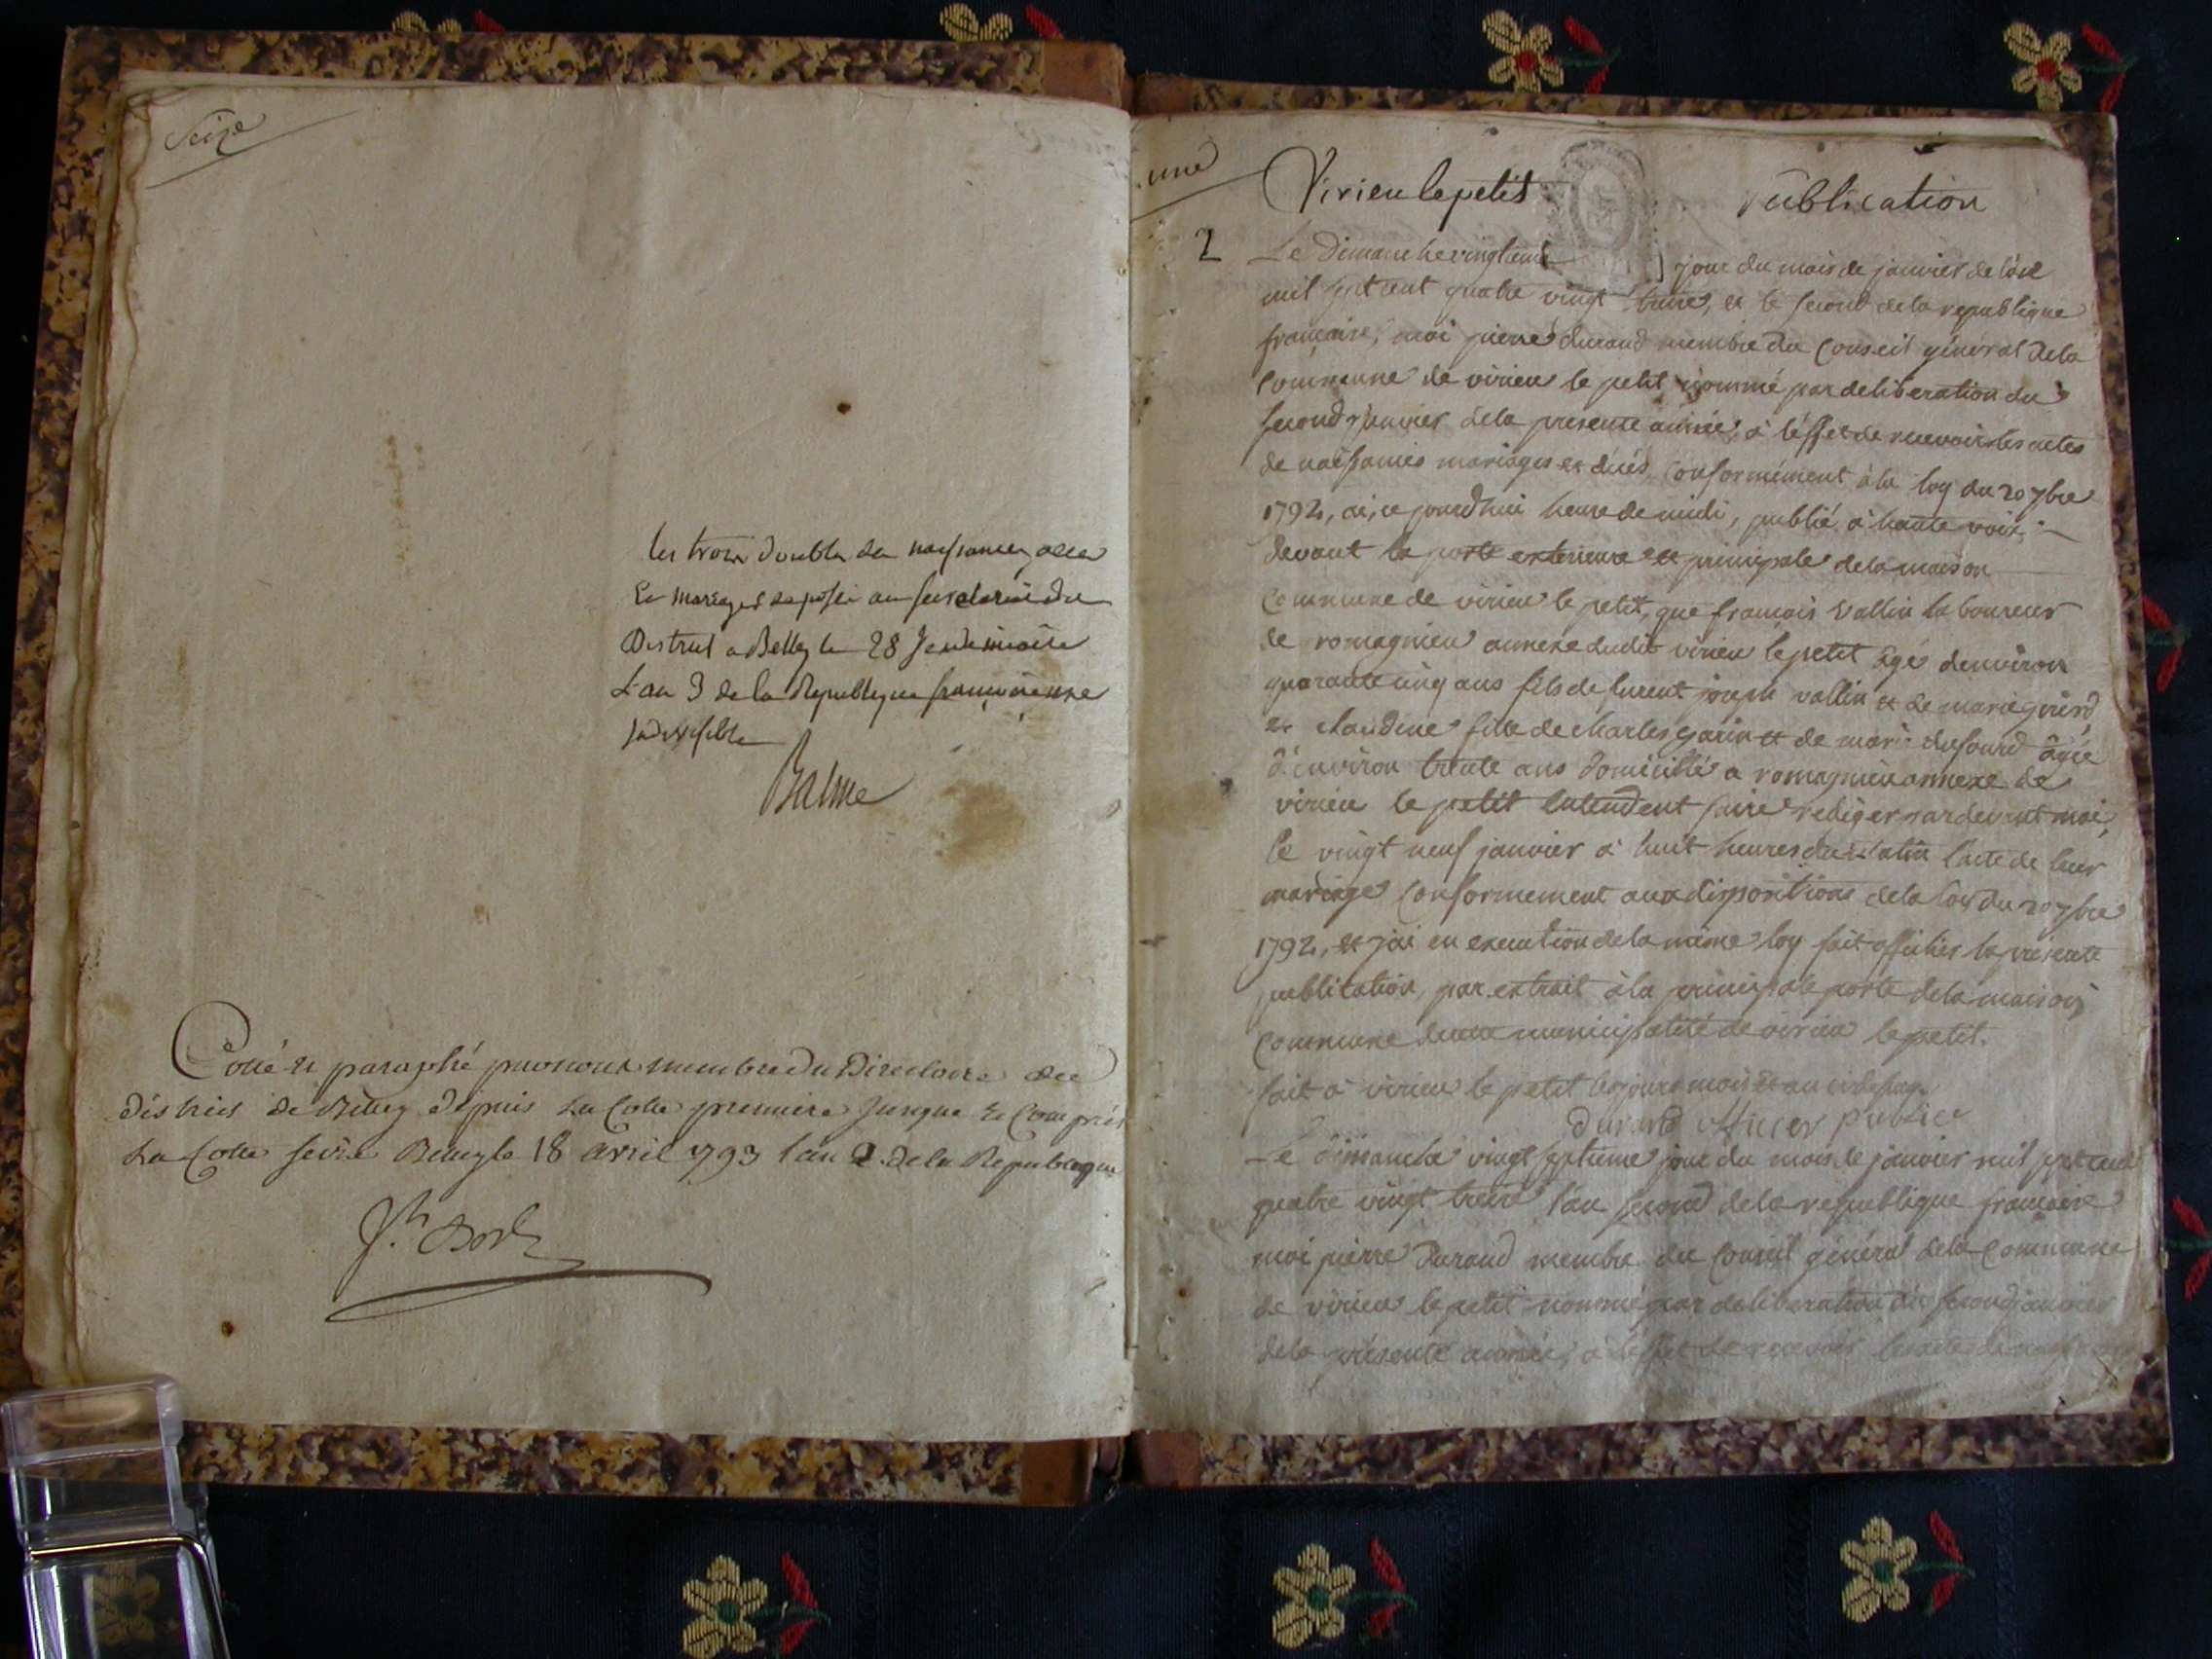 Seize
les trois doubles de naissances, deces
et mariages deposés au secretariat du
District a Belley le 28 Vendemiaire
L'an 3 de la Republique françoise une
Indivisible
Balme
Cotté et paraphé par nous membre du Directoire du
district de Belley depuis la Cotte premiere jusque et compris
la Cotte seize Belley le 18 avril 1793 l'an 2. de la Republique
une
Virieu le petit
publication
2
Le Dimanche vingtieme jour du mois de janvier de l'an
mil sept cent quatre vingt treize, et le second de la republique
françaire, moi pierre durand membre du Conseil général de la
Commune de virieu le petit nommé par deliberation du
second janvier de la presente année, à l'éffet de recevoir les actes
de naissances mariages et décés conformément à la loy du 20 7bre
1792, ai, ce jourd'hui heure de midi, publié à haute voix
devant la porte exterieure et principale de la maison
Commune de virieu le petit, que françois vallin laboureur
de romagnieu annexe dudit virieu le petit âgé d'environ
quarante cinq ans fils de furent joseph vallin et de marie
et claudine fille de charles garin et de marie dufourd âgée
d'environ trente ans domicilié a romagnieu annexe de
virieu le petit entendent faire rediger pardevant moi,
le vingt neuf janvier à huit heures du matin l'acte de leur
mariage conformement aux dispositions de la loy du 20 7bre
1792, et j'ai en execution de la même loy fait afficher la présente
publication, par extrait à la principale porte de la maison
commune de cette municipalité de virieu le petit.
fait à virieu le petit les jours mois et an
durand officier public
Le dimanche vingt septieme jour du mois de janvier mil sept cent
quatre vingt treize l'an second de la republique française
moi pierre durand membre du Conseil général de la Commune
de virieu le petit nommé par deliberation du second janvier
de la présente année, a l'éffet de recevoir les actes de naissances